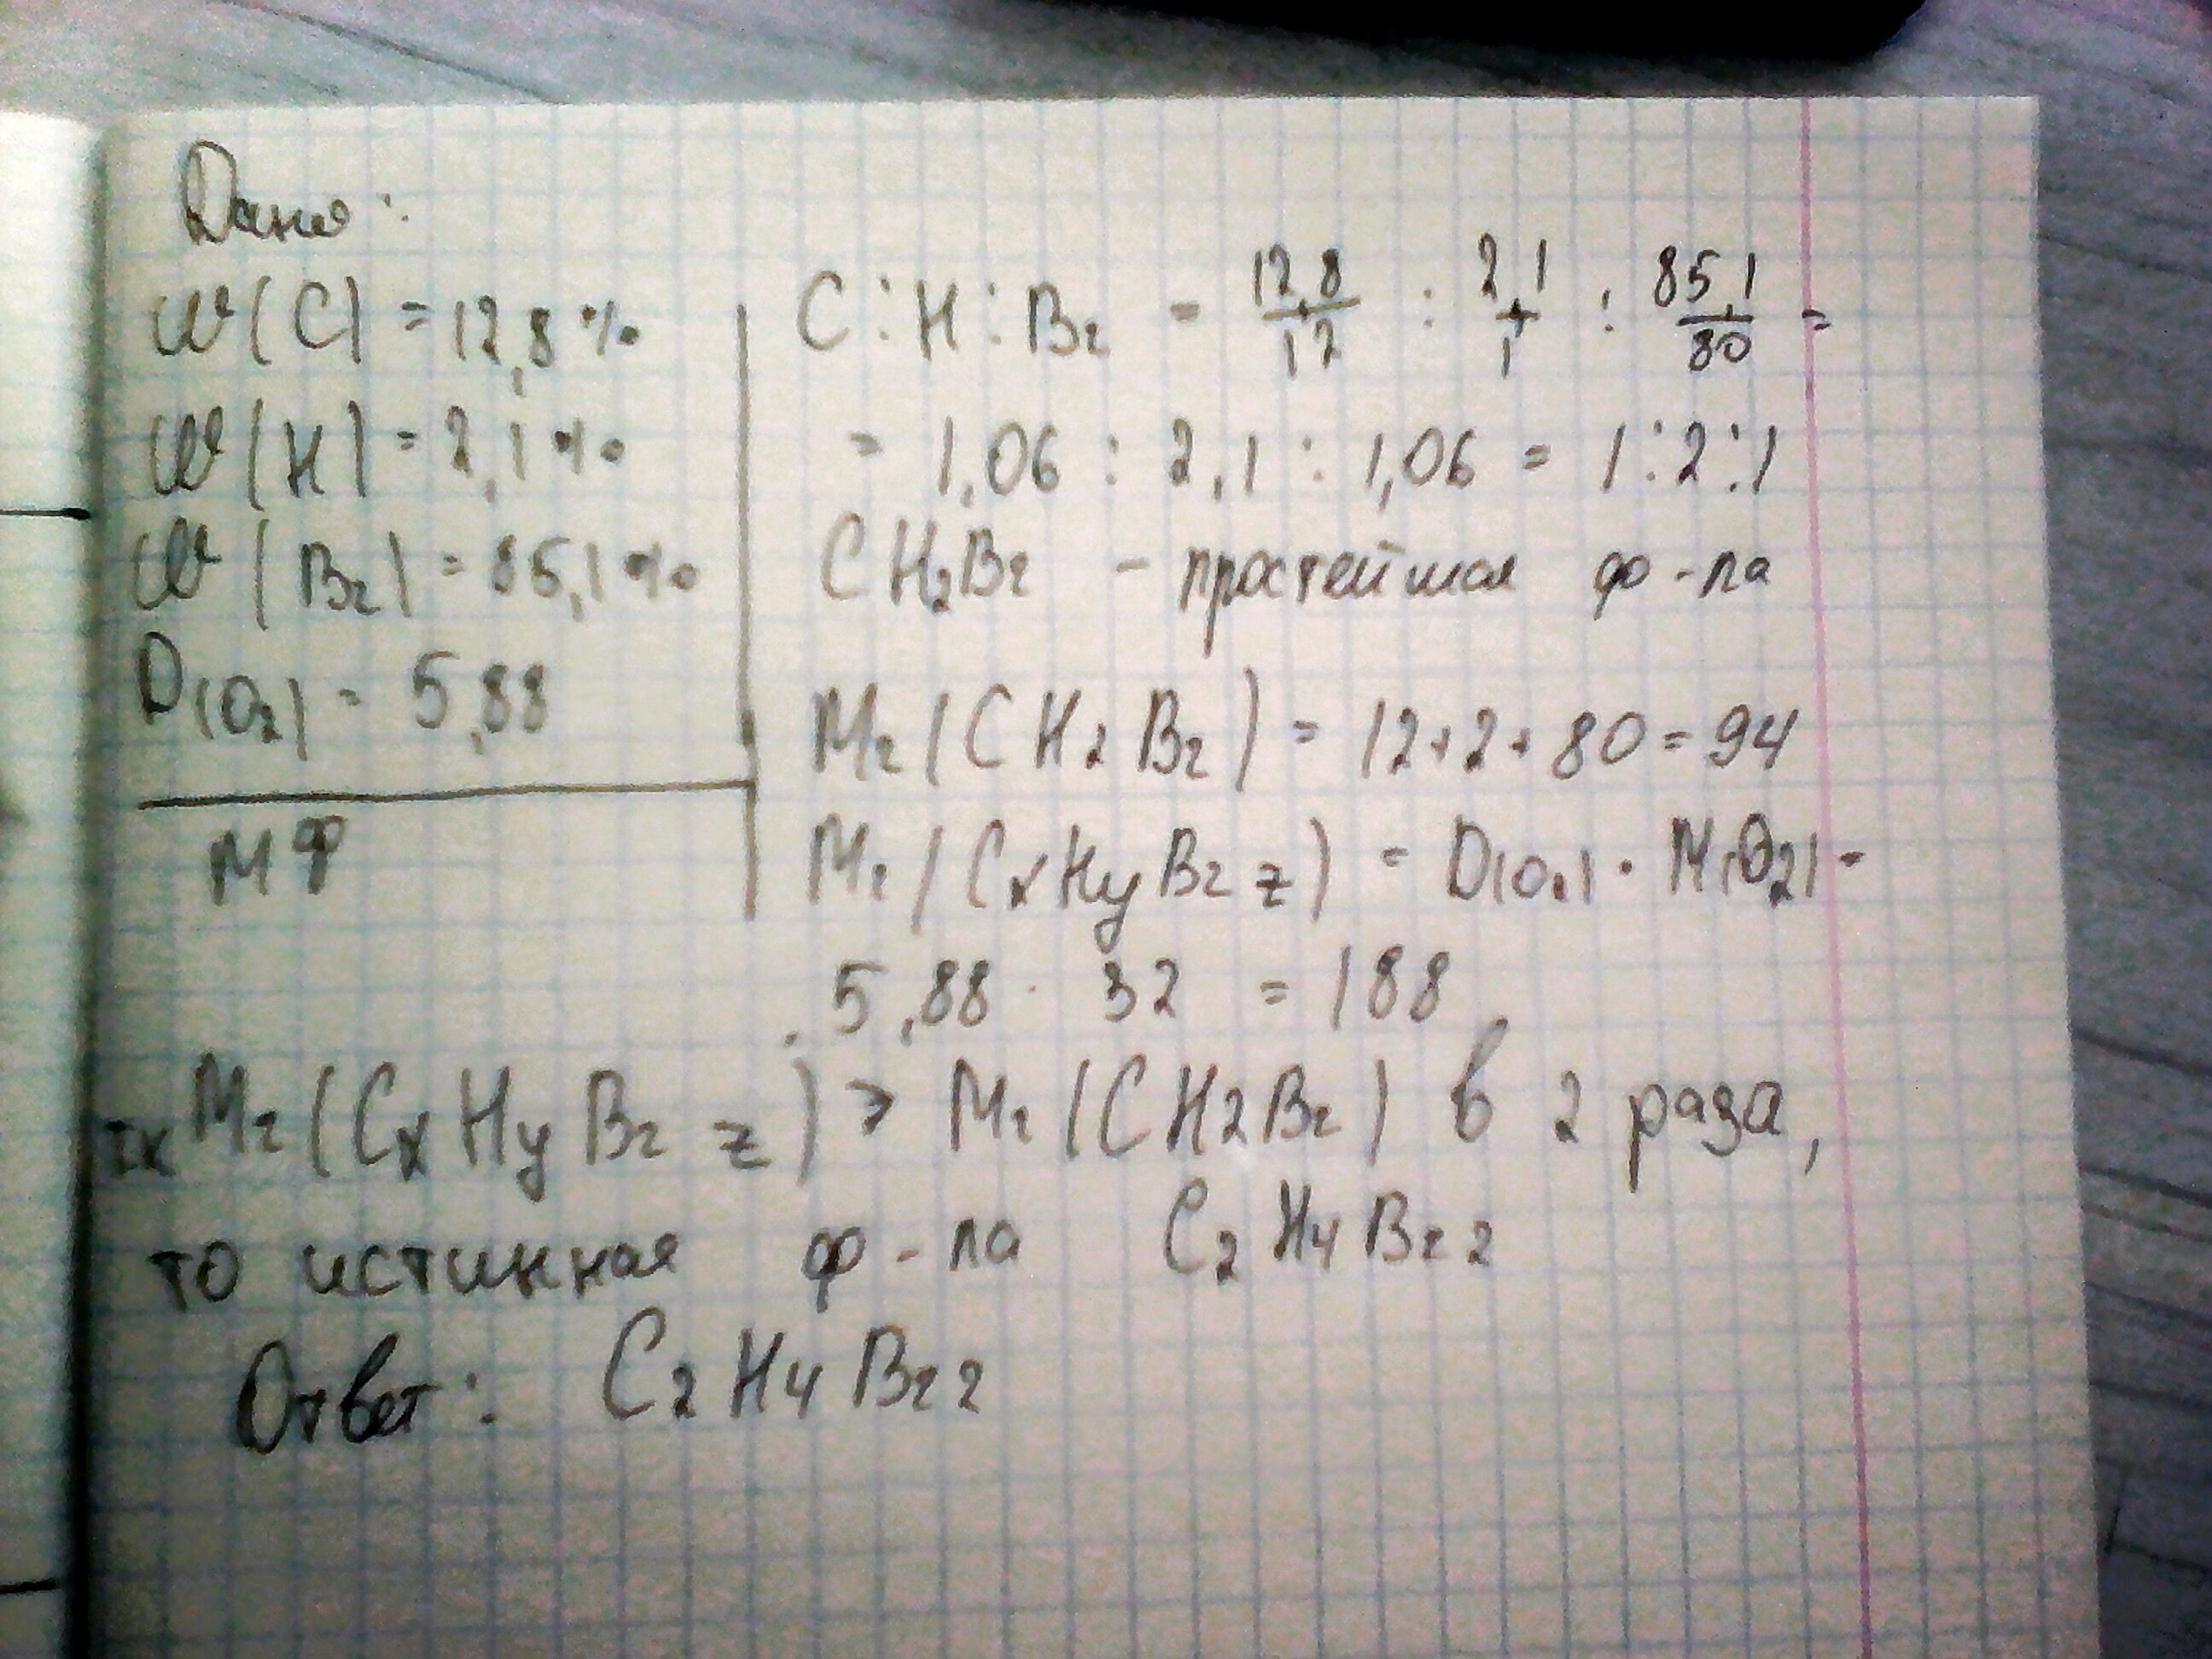 Дано:
W(C) = 12,8 %
W(H) = 2,1 %
W(Br) = 85,1 %
D(O2) = 5,88
МФ
C : H : Br = 12,8/12 : 2,1/1 : 85,1/80 =
= 1,06 : 2,1 : 1,06 = 1:2:1
CH2Br - простейшая ф-ла
Mr(CH2Br) = 12+2+80=94
Mr(CxHyBrz) = D(O2) · M(O2) =
5,88 · 32 = 188
тк Mr(CxHyBrz) > Mr(CH2Br) в 2 раза,
то истинная ф-ла C2H4Br2
Ответ: C2H4Br2